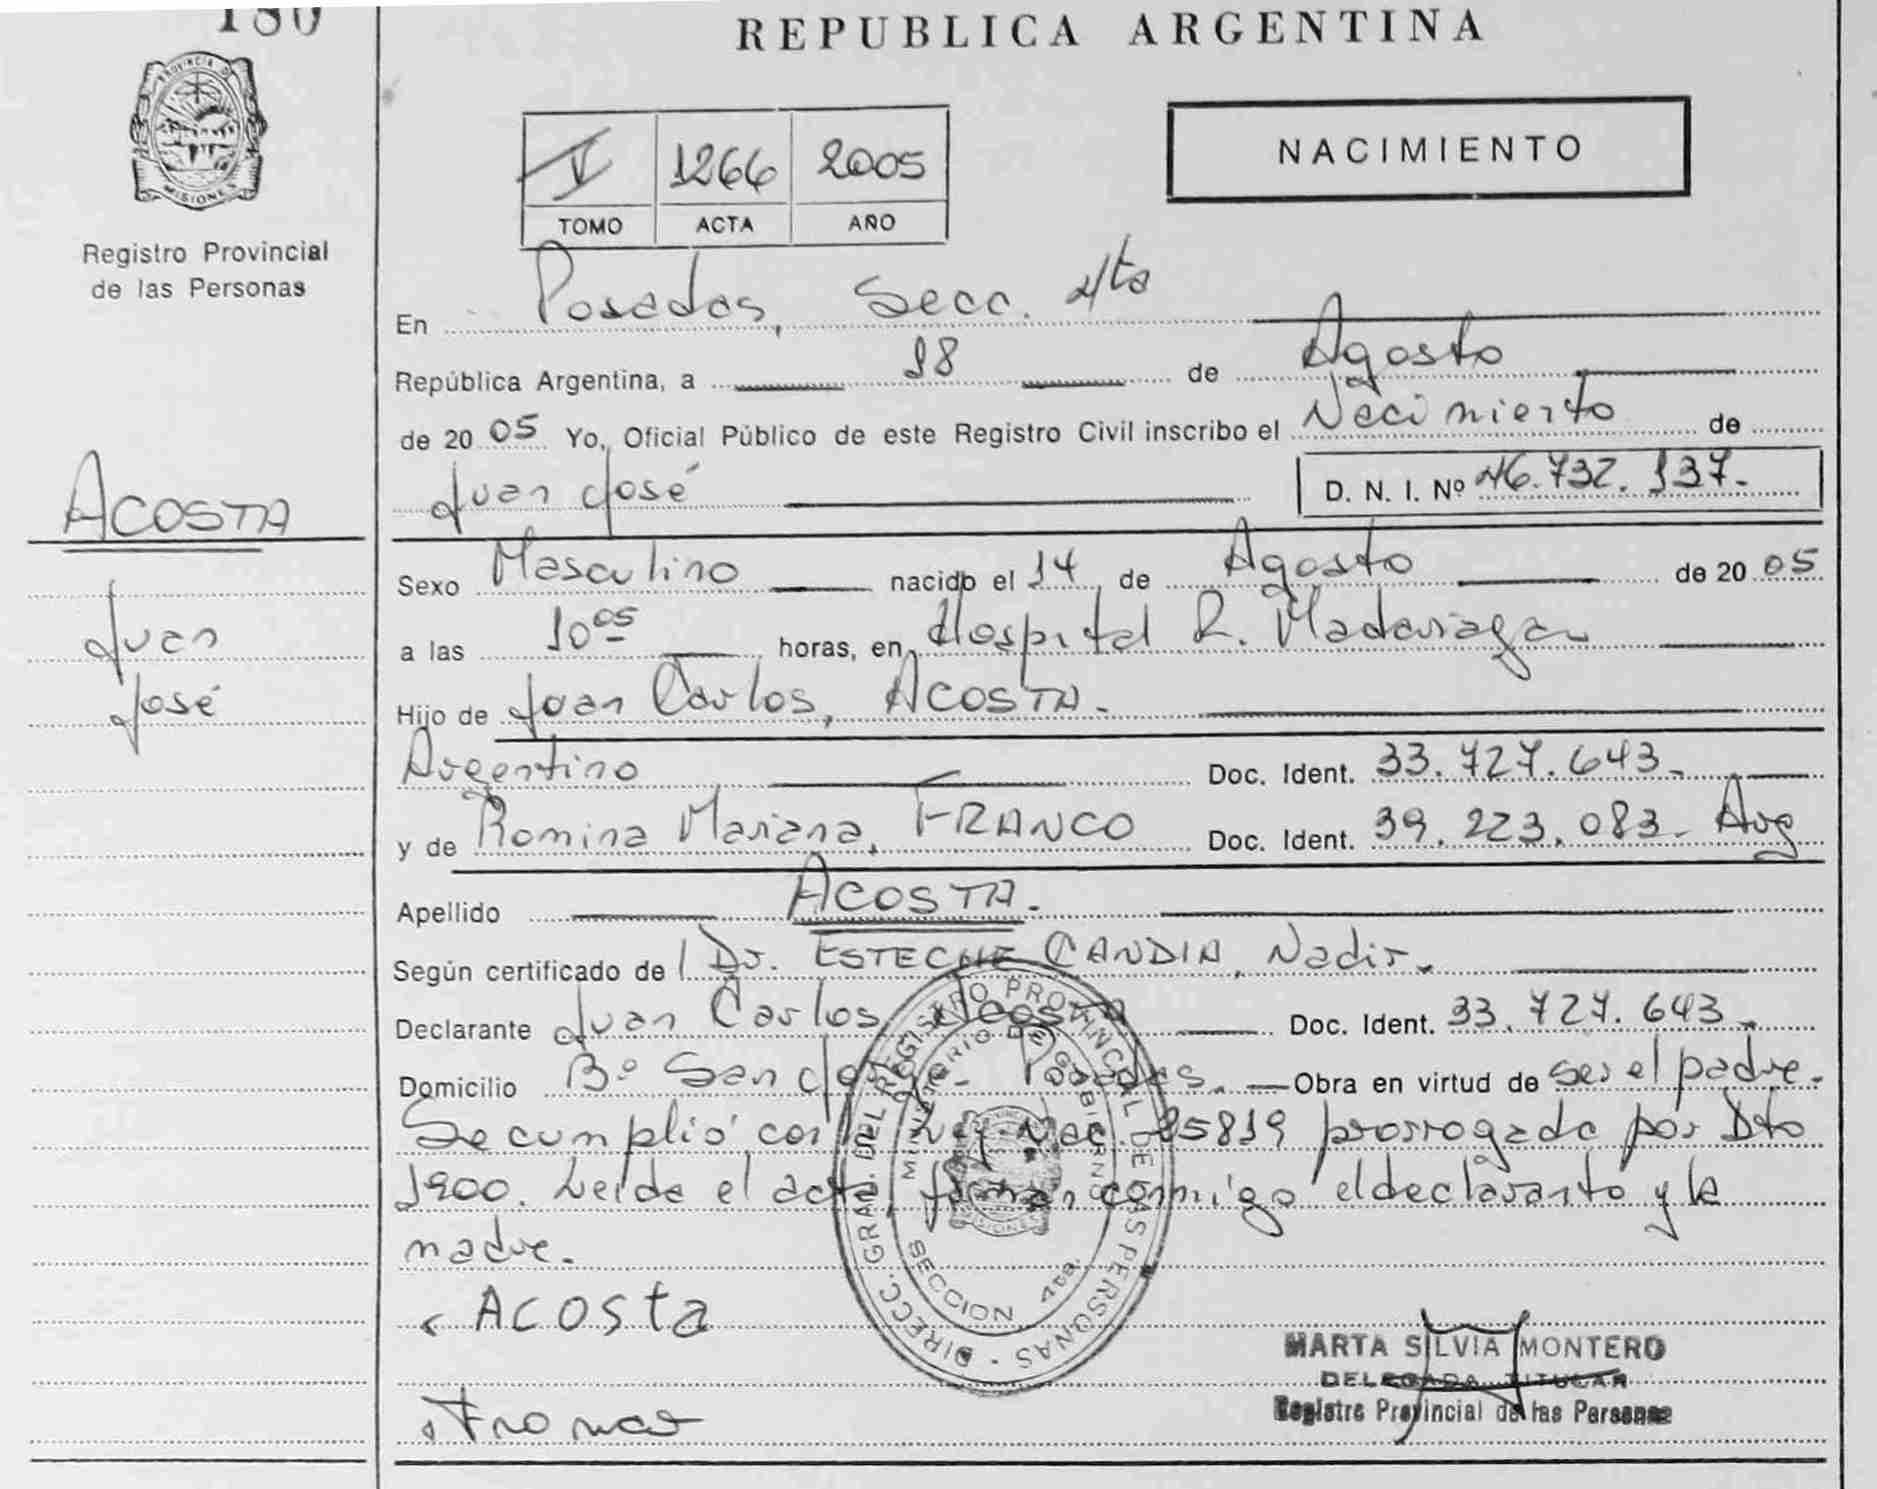 180
REPUBLICA ARGENTINA
PROVINCIA D MISIONES
Registro Provincial
de las Personas
V 1266 2005
TOMO ACTA AÑO
NACIMIENTO
En Posadas, Secc. 4ta
República Argentina, a 18 de Agosto
de 20 05 Yo, Oficial Público de este Registro Civil inscribo el Nacimiento de
Juan José D. N. I. Nº 46.732.137.
ACOSTA
Juan
José
Sexo Masculino nacido el 14 de Agosto de 20 05
a las 10 05 horas, en Hospital R. Madariaga
Hijo de Juan Carlos, ACOSTA.
Argentino Doc. Ident. 33.727.643.
y de Romina Mariana, FRANCO Doc. Ident. 39.223.083. Arg
Apellido ACOSTA.
Según certificado de Dr. ESTECHE CANDIA, Nadir.
Declarante Juan Carlos, Acosta Doc. Ident. 33.727.643.
Domicilio Bº San Jorge. Posadas. Obra en virtud de ser el padre.
Se cumplió con Ley Nac. 25819 prorrogada por Dto
1900. Leida el acta, firman conmigo el declarante y la
madre.
ACOSta
Franco
DIRECC. GRAL. DEL REGISTRO PROVINCIAL DE LAS PERSONAS
MINISTERIO DE GOBIERNO
SECCION 4ta.
MISIONES
MARTA SILVIA MONTERO
DELEGADA TITULAR
Registro Provincial de las Personas